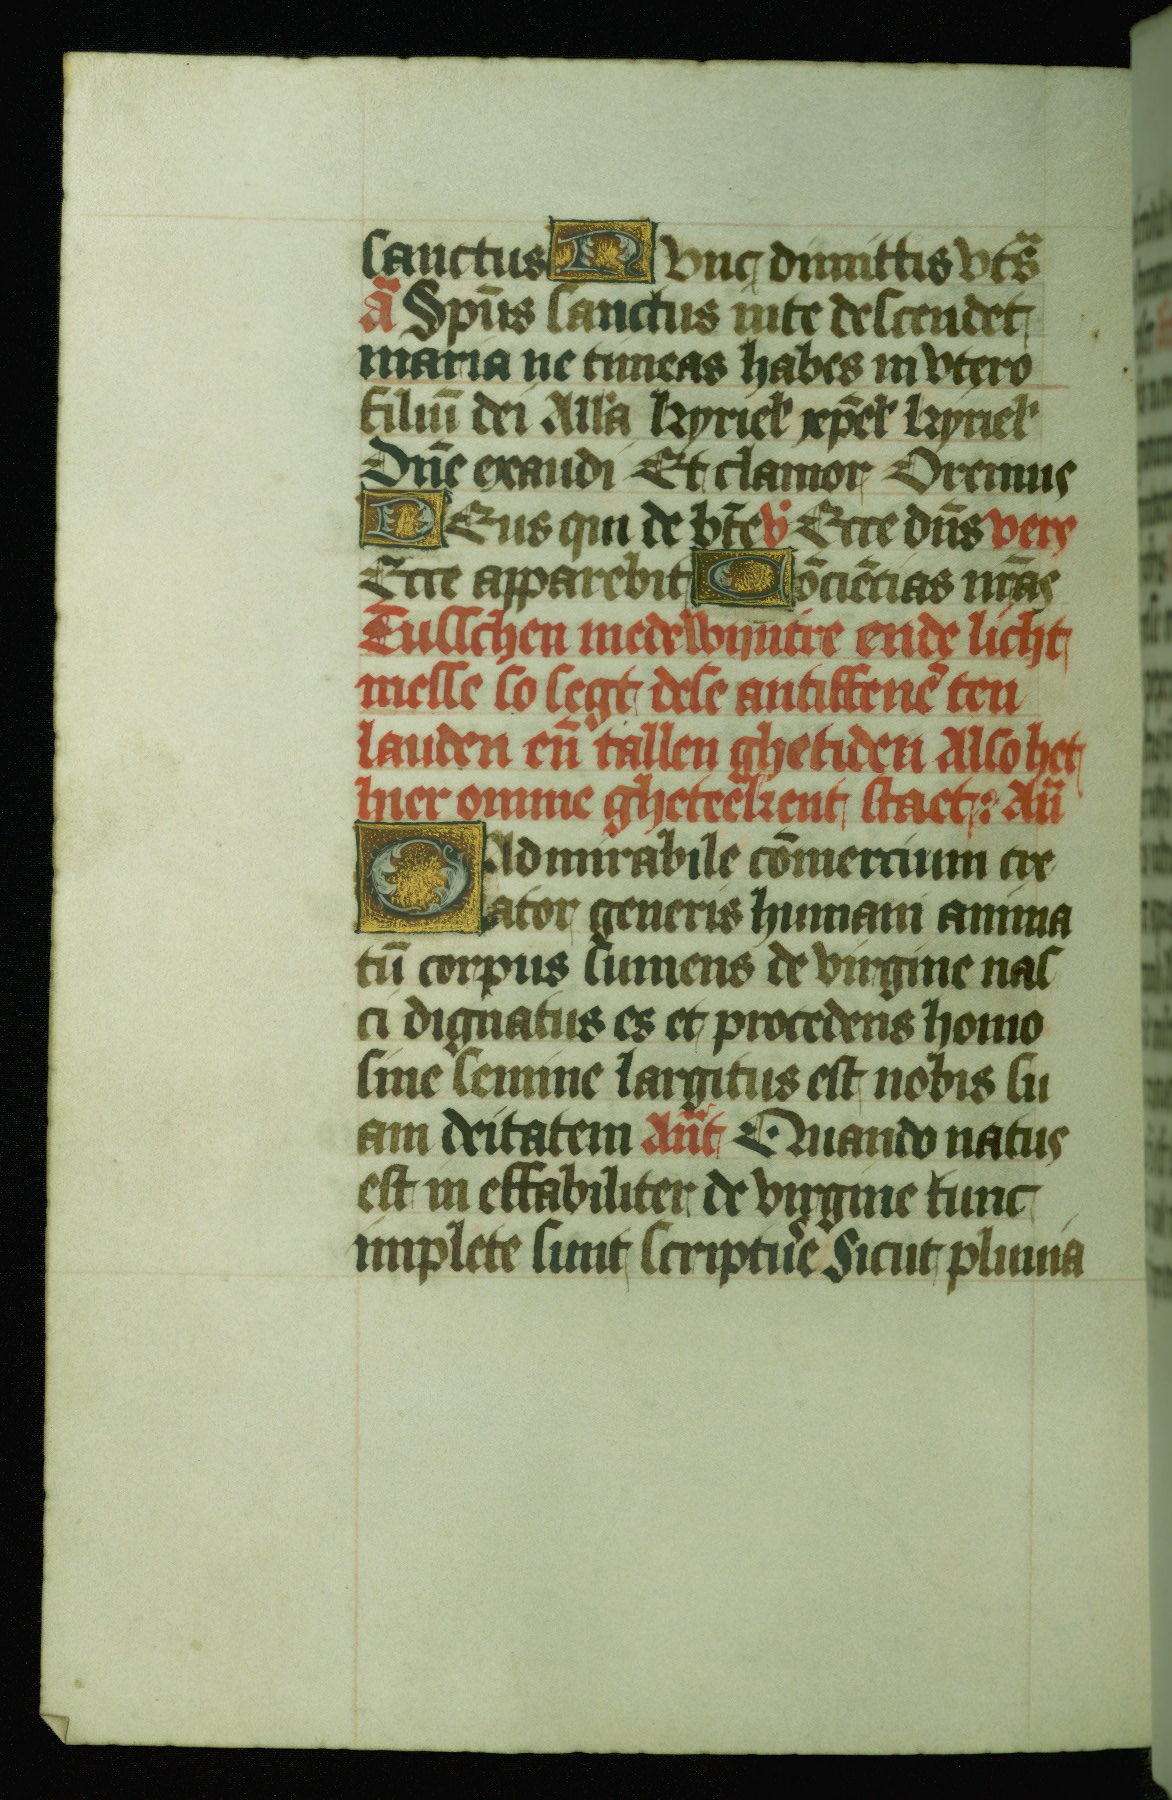 sanctus Nunc dimittis vts̄
ā Spūs sanctus in te descendet
maria ne timeas habes in vtero
filiū dei All'a kyriel' xp̄el' kyriel'
Dn̄e exaudi Et clamor Oremus
DEus qui de bt̄e v̄ Ecce dn̄s vers
Ecce apparebit Cōciēcias nr̄as
Tusschen mede wyntre ende licht
messe so segt dese antiffenē ten
lauden en̄ tallen ghetiden Also het
hier omme gheteekent staet: An̄
O Admirabile cōmercium cre
ator generis humani anima
tū corpus sumens de virgine nas
ci dignatus es et procedens homo
sine semine largitus est nobis su
am deitatem An̄t Quando natus
est in effabiliter de virgine tunc
implete sunt scriptur̄e Sicut pluuia